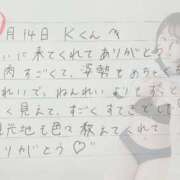 月14日 Kくんへ
いに来てくれてありがとう
肉すごくて、姿勢もめちゃく
れいで、ねんれい
く見えて、すごくすてきでし
元地も色々教えてくれて
りがとう♡